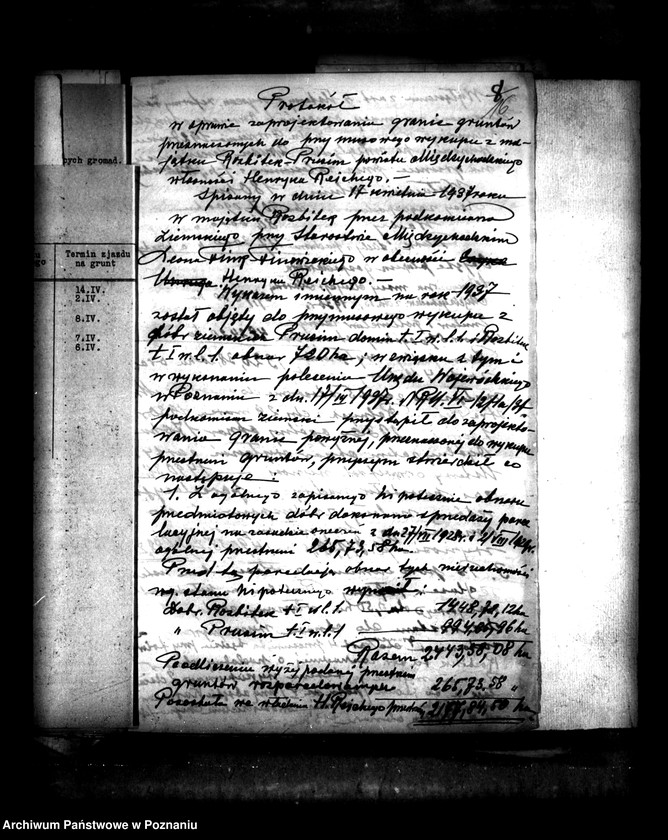 8
16
Protokół
w sprawie zaprojektowania granic gruntów
przeznaczonych do przymusowego wykupu z ma-
jątku Rozbitek-Prusim powiatu Międzychodzkiego
własności Henryka Reichego. —
Spisany w dniu 17 kwietnia 1937 roku
w majątku Rozbitek przez podkomisarza
Ziemskiego przy Starostwie Międzychodzkim
Leona w obecności
Henryka Reichego. —
Wykazem imiennym na rok 1937
został objęty do przymusowego wykupu z
dóbr ziemskich Prusim domin. t. I w.l. 1 i Rozbitek
t. I w.l. 1. obszar 720 ha; w związku z tym i
w wykonaniu polecenia Urzędu Wojewódzkiego
w Poznaniu z dn. 17/III 1937 r.
podkomisarz ziemski przystąpił do zaprojekto-
wania granic powyższej, przeznaczonej do wykupu
przestrzeni gruntów, przyczem stwierdził co
następuje:
1. Z ogólnego zapisanego hipotecznie obszaru
przedmiotowych dóbr dokonano sprzedaży parce-
lacyjnej na zasadzie z dn 27/VII 1928 r. i
ogólnej przestrzeni 265,73,58 ha.
Przed tą parcelacją obszar tych nieruchomości
wg. stanu hipotecznego
dobr. Rozbitek t I w.l. 1. 1448,78,12 ha
" Prusim t. I w.l. 1 994,85,96 ha
Razem 2443,58,08 ha
Po odliczeniu wyżej podanej przestrzeni
gruntów rozparcelowanych 265,73,58 "
Pozostało we władaniu H. Reichego 2177,84,50 ha
ych gromad.
Termin zjazdu
na grunt
14.IV.
2.IV.
8.IV.
7.IV.
6.IV.
Archiwum Państwowe w Poznaniu